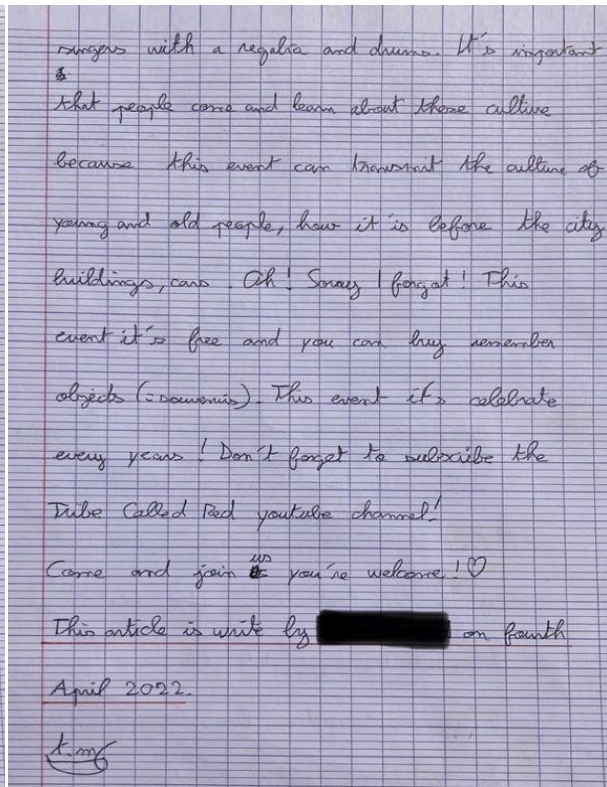 singers with a regalia and drums. It's important
that people come and learn about these culture
because this event can transmit the culture of
young and old people, how it is before the city
buildings, cars. Oh! Sorry I forgot! This
event it's free and you can buy remember
objects (= souvenirs). This event it's celebrate
every years! Don't forget to subscribe the
Tribe Called Red youtube channel!
Come and join us you're welcome! ♡
This article is write by on fourth
April 2022.